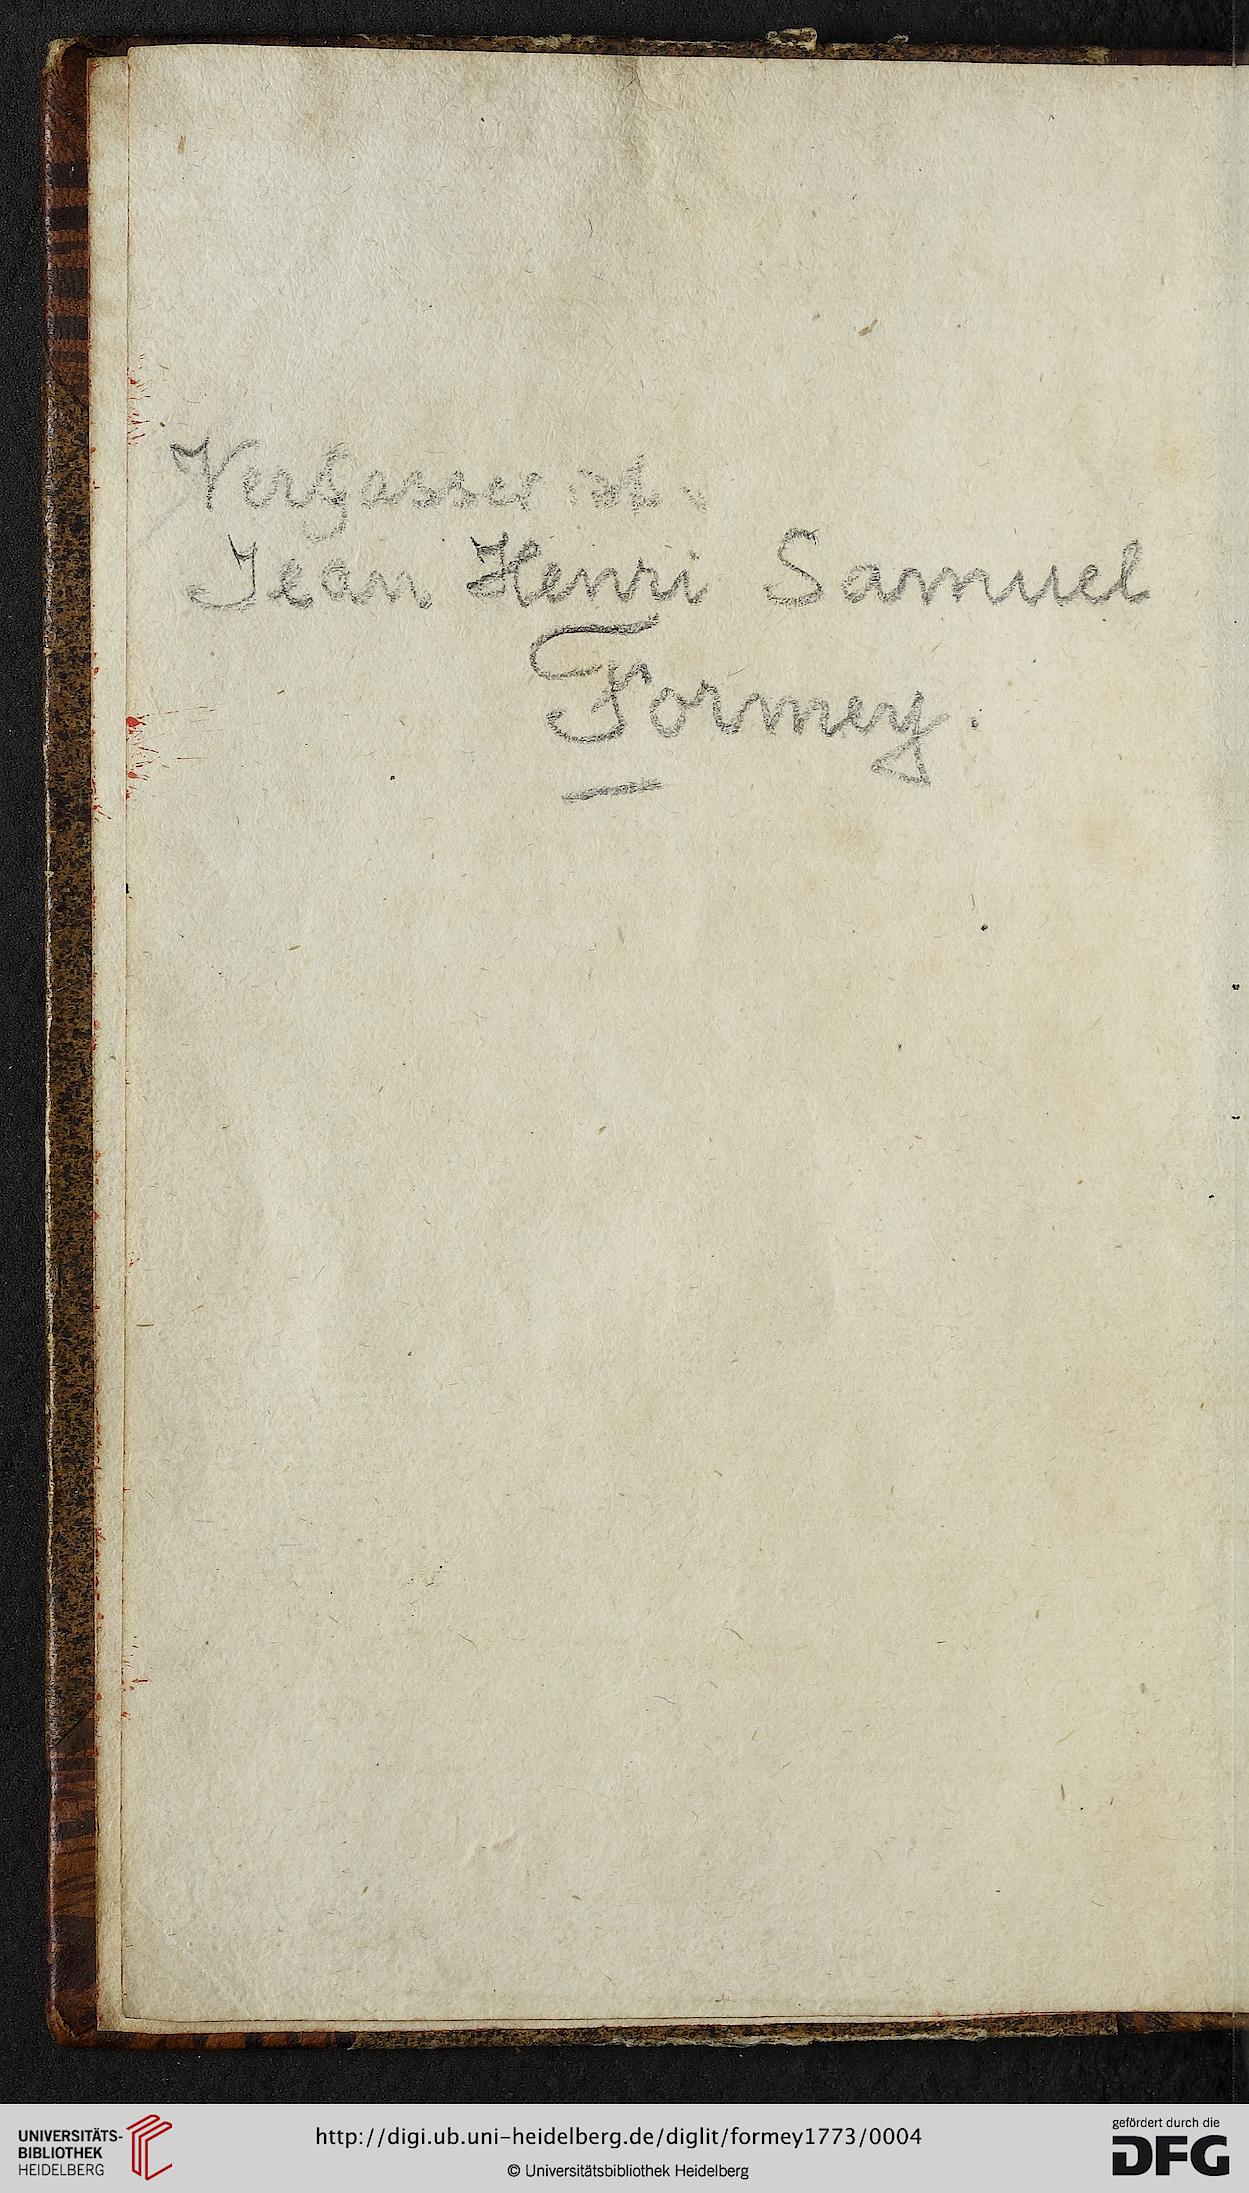 Verfasser ist.
Jean Henri Samuel
Formey.
UNIVERSITÄTS-
BIBLIOTHEK
HEIDELBERG
http://digi.ub.uni-heidelberg.de/diglit/formey1773/0004
© Universitätsbibliothek Heidelberg
gefördert durch die
DFG